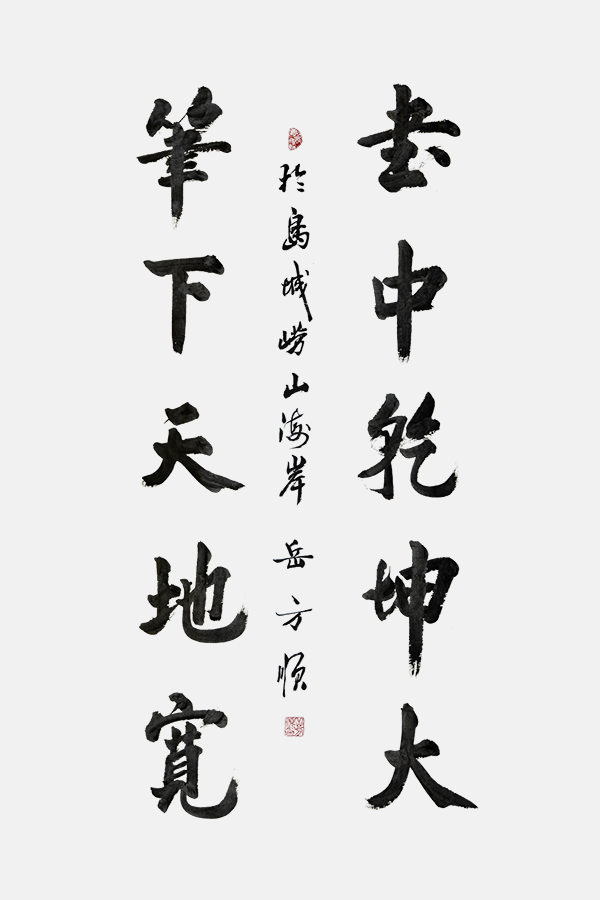 書中乾坤大
筆下天地寬
於島城嶗山海岸 岳方順